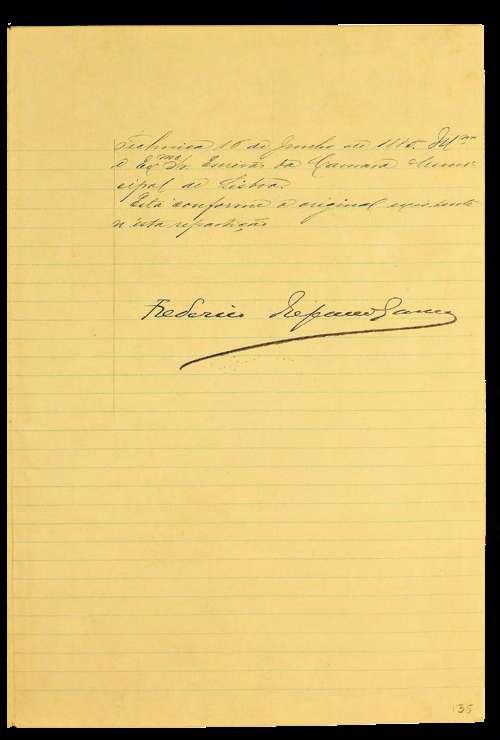 Technica 16 de Junho de 18 Ill.mo
e Ex.mo Sr. Escrivão da Camara Muni-
cipal de Lisboa
Está conforme o original existente
n'esta repartição
Frederico
135